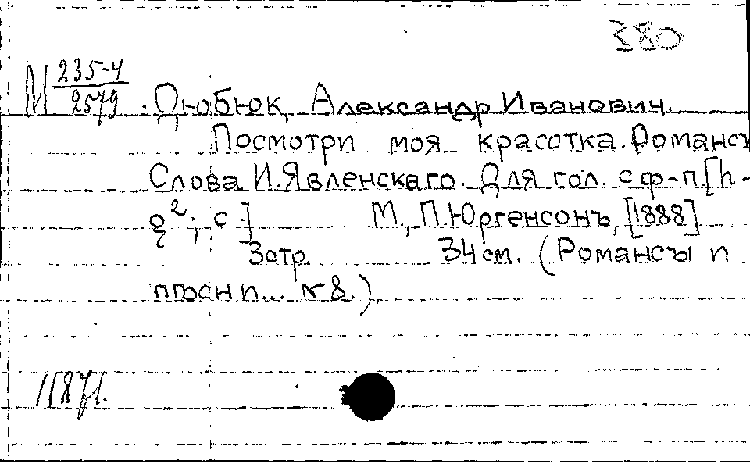 380
М 235-4
2579
Дюбюк, Александр Иванович.
Посмотри моя красотка. Романсъ
Слова И. Явленскаго. Для гол. с ф-п. [h-
g²; c] М., П. Юргенсонъ, [1888]
3 стр. 34 см. (Романсы и
пѣсни... № 8.)
11871.